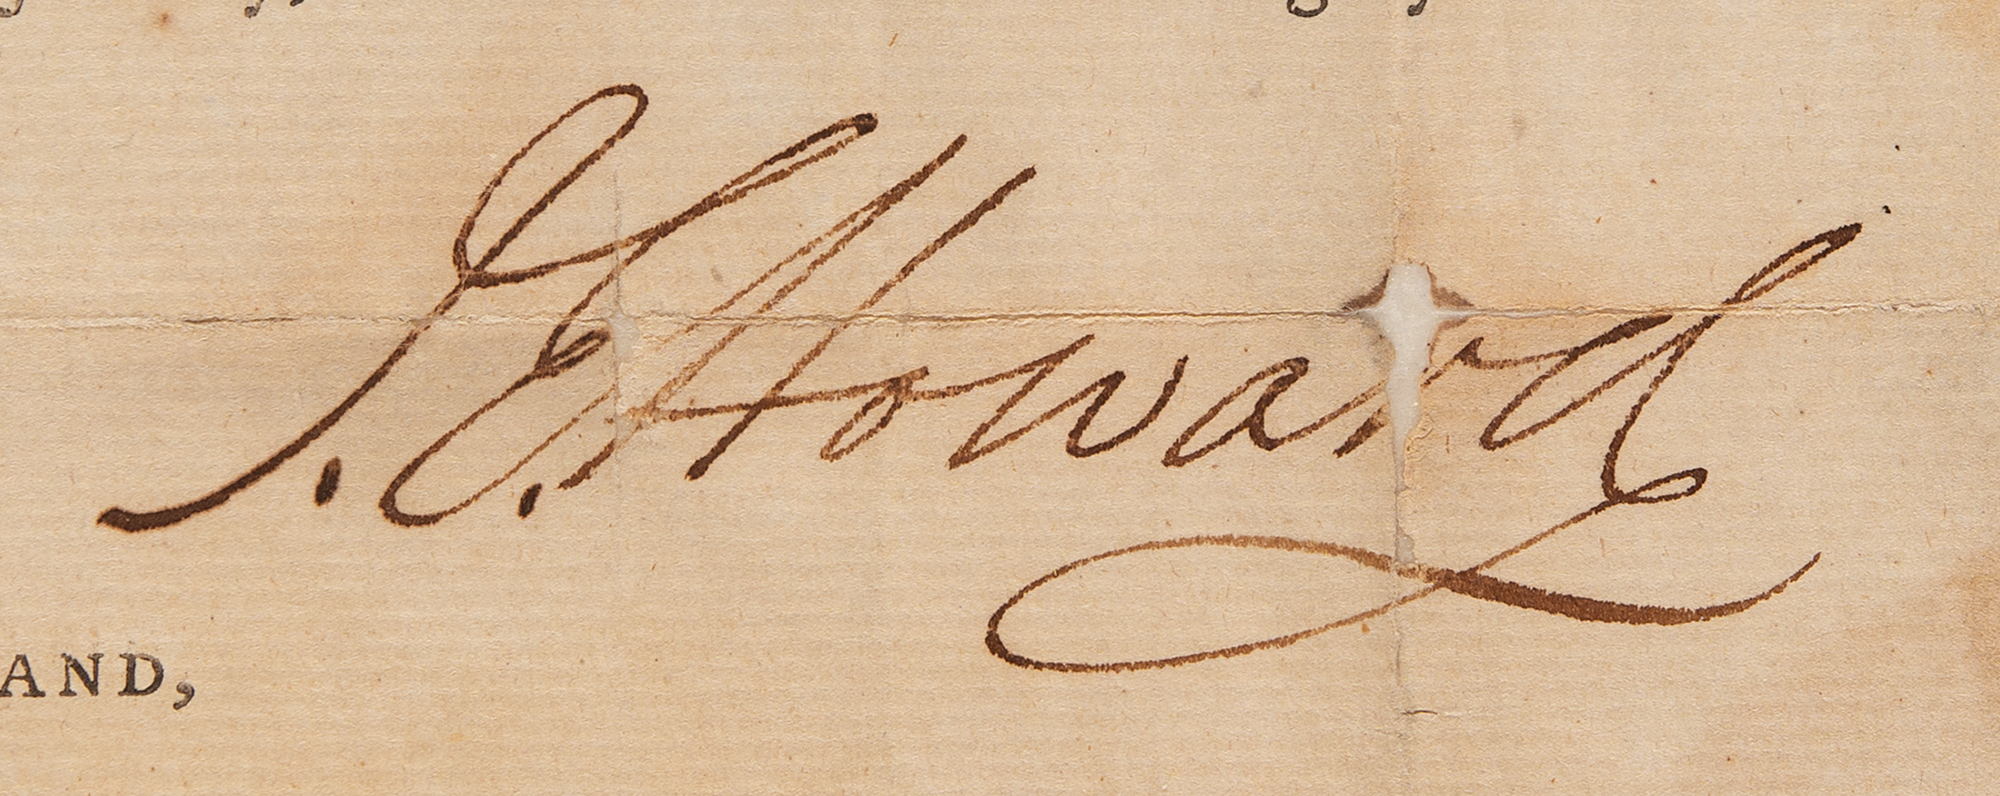 J. E. Howard
AND,